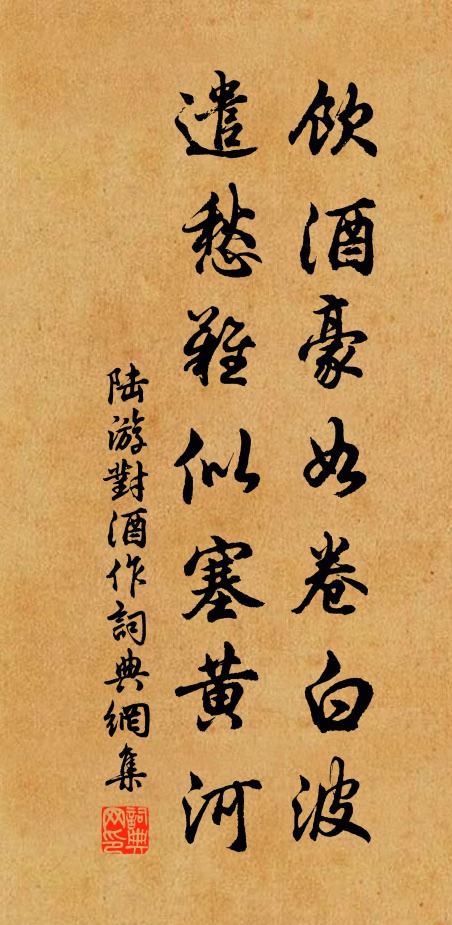 飲酒豪如卷白波
遣愁難似塞黄河
陆游對酒作詞典網集
詞典网印